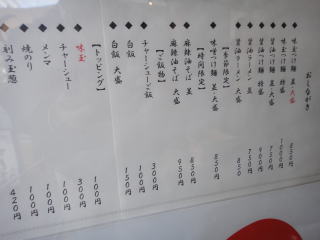 おしながき
味玉つけ麺 並・大盛 850円
味玉つけ麺 特盛 1000円
醤油つけ麺 並・大盛 750円
醤油つけ麺 特盛 900円
醤油ラーメン 並 750
醤油ラーメン 大盛 850
【季節限定】
味噌つけ麺 並・大盛 850円
【時間限定】
麻辣油そば 並 850円
麻辣油そば 大盛 950円
【ご飯物】
チャーシューご飯 300円
白飯 100円
白飯 大盛 150円
【トッピング】
味玉 100円
チャーシュー 300円
メンマ 100円
焼のり 100円
刻み玉葱 100円